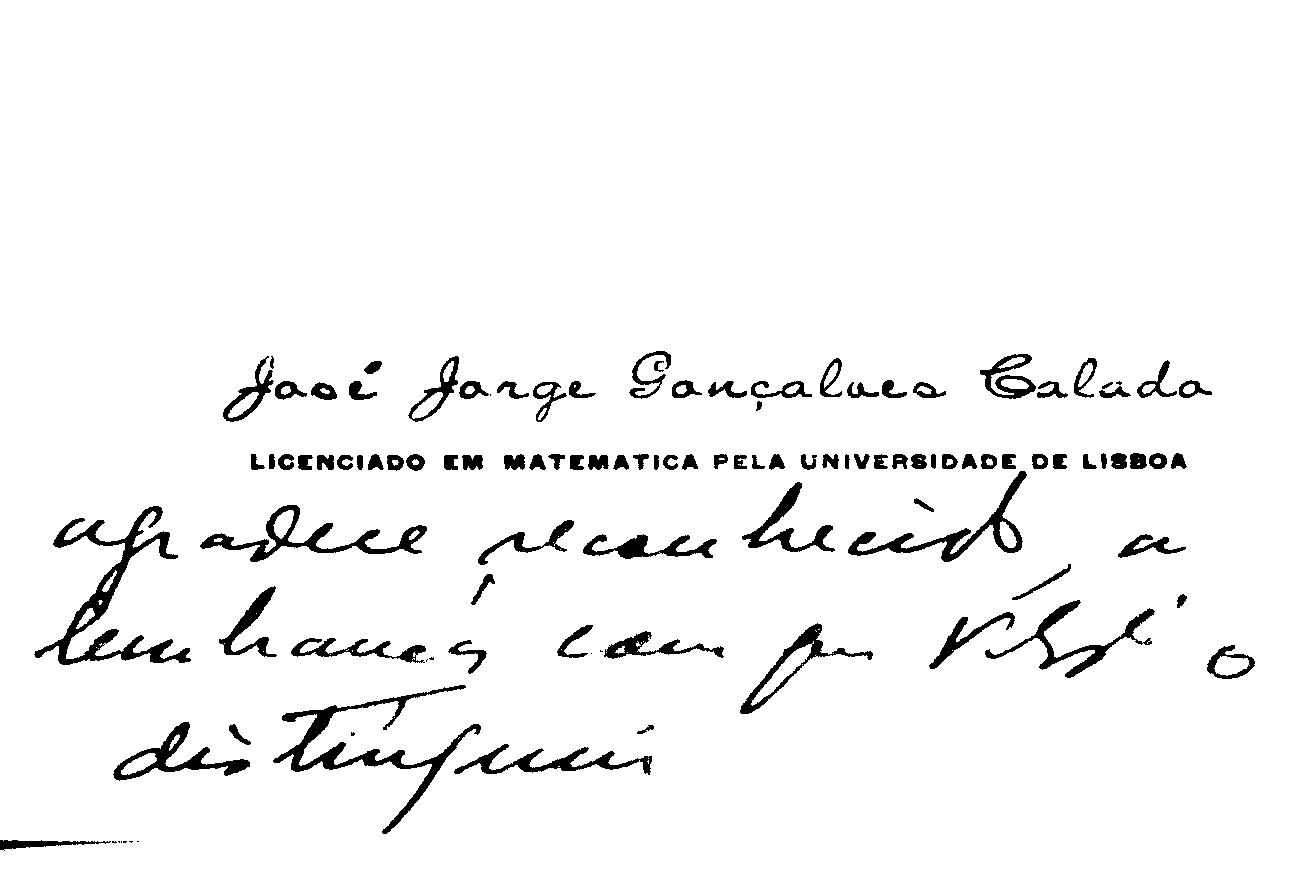 José Jorge Gonçalves Calado
LICENCIADO EM MATEMATICA PELA UNIVERSIDADE DE LISBOA
agradece reconhecido a
lembrança com que o
distinguiu